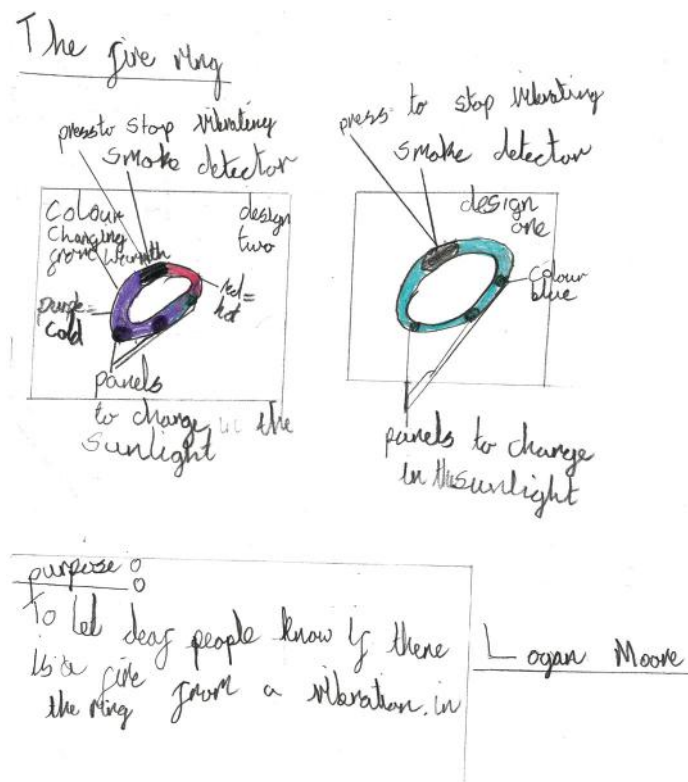 The fire ring
press to stop vibrating
smoke detector
Colour
Changing
from warmth
design
two
purple =
cold
red =
hot
panels
to change in the
sunlight
press to stop vibrating
smoke detector
design
one
colour
blue
panels to change
in the sunlight
purpose:
To let deaf people know if there
is a fire from a vibration in
the ring
Logan Moore